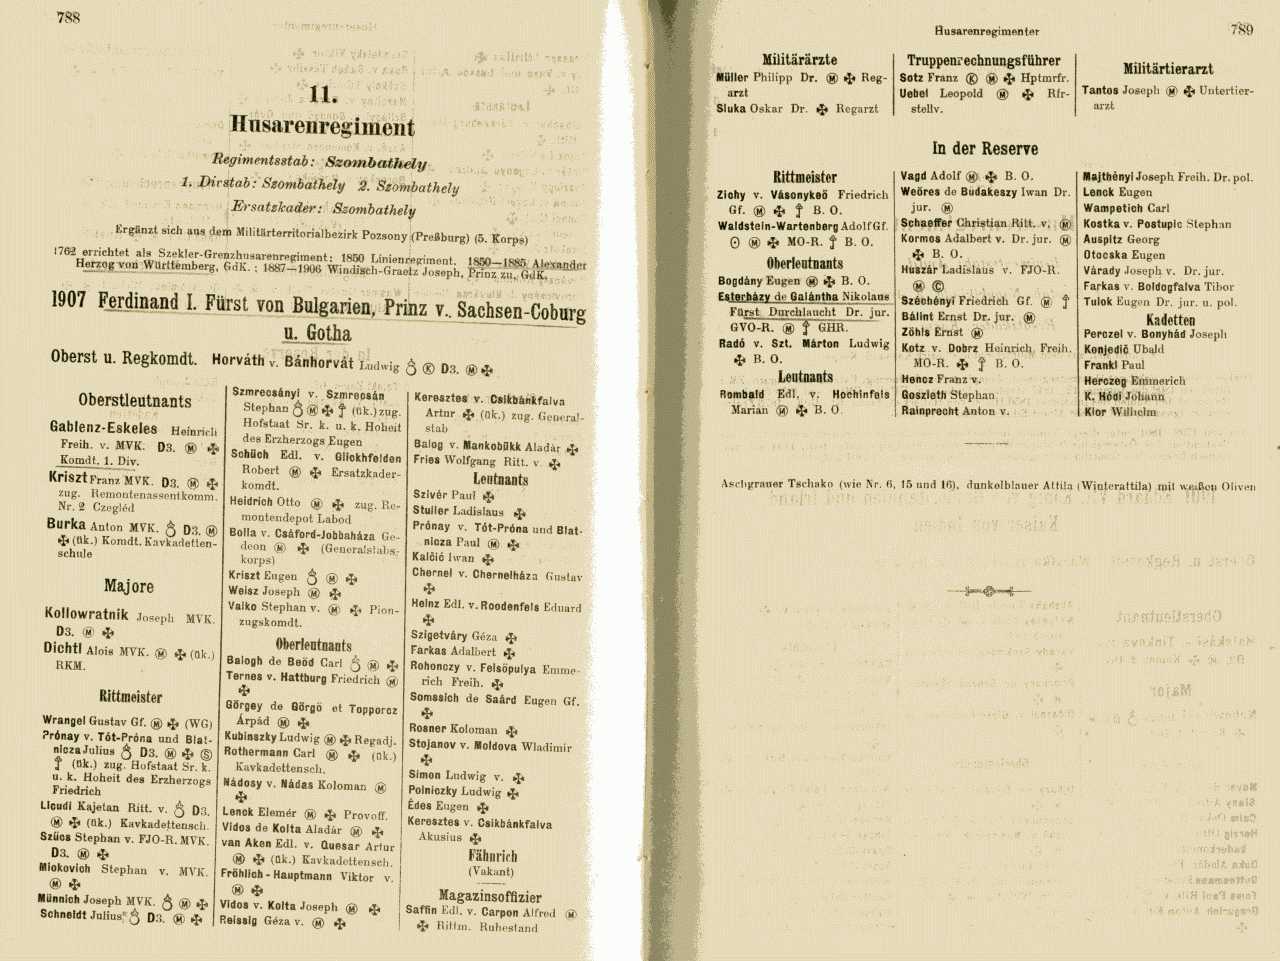 788
11.
Husarenregiment
Regimentsstab: Szombathely
1. Divstab: Szombathely 2. Szombathely
Ersatzkader: Szombathely
Ergänzt sich aus dem Militärterritorialbezirk Pozsony (Preßburg) (5. Korps)
1762 errichtet als Szekler-Grenzhusarenregiment; 1850 Linienregiment. 1850—1885 Alexander
Herzog von Württemberg, GdK.; 1887—1906 Windisch-Graetz Joseph, Prinz zu, GdK.
1907 Ferdinand I. Fürst von Bulgarien, Prinz v. Sachsen-Coburg
u. Gotha
Oberst u. Regkomdt. Horváth v. Bánhorvát Ludwig Ⓚ D3. Ⓜ ✠
Oberstleutnants
Gablenz-Eskeles Heinrich
Freih. v. MVK. D3. Ⓜ ✠
Komdt. 1. Div.
Kriszt Franz MVK. D3. Ⓜ ✠
zug. Remontenassentkomm.
Nr. 2 Czegléd
Burka Anton MVK. D3. Ⓜ
✠ (ük.) Komdt. Kavkadetten-
schule
Majore
Kollowratnik Joseph MVK.
D3. Ⓜ ✠
Dichtl Alois MVK. Ⓜ ✠ (ük.)
RKM.
Rittmeister
Wrangel Gustav Gf. Ⓜ ✠ (WG)
Prónay v. Tót-Próna und Blat-
nicza Julius D3. Ⓜ ✠ Ⓢ
(ük.) zug. Hofstaat Sr. k.
u. k. Hoheit des Erzherzogs
Friedrich
Licudi Kajetan Ritt. v. D3.
Ⓜ ✠ (ük.) Kavkadettensch.
Szücs Stephan v. FJO-R. MVK.
D3. Ⓜ ✠
Miokovich Stephan v. MVK.
Ⓜ ✠
Münnich Joseph MVK. Ⓜ ✠
Schneldt Julius D3. Ⓜ ✠
Szmrecsányi v. Szmrecsán
Stephan Ⓜ ✠ (ük.) zug.
Hofstaat Sr. k. u. k. Hoheit
des Erzherzogs Eugen
Schüch Edl. v. Glickhfelden
Robert Ⓜ ✠ Ersatzkader-
komdt.
Heidrich Otto Ⓜ ✠ zug. Re-
montendepot Labod
Bolla v. Csáford-Jobbaháza Ge-
deon Ⓜ ✠ (Generalstabs-
korps)
Kriszt Eugen Ⓜ ✠
Weisz Joseph Ⓜ ✠
Valko Stephan v. Ⓜ ✠ Pion-
zugskomdt.
Oberleutnants
Balogh de Beöd Carl Ⓜ ✠
Ternes v. Hattburg Friedrich Ⓜ
✠
Görgey de Görgö et Topporcz
Árpád Ⓜ ✠
Kubinszky Ludwig Ⓜ ✠ Regadj.
Rothermann Carl Ⓜ ✠ (ük.)
Kavkadettensch.
Nádosy v. Nádas Koloman Ⓜ
✠
Lenck Elemér Ⓜ ✠ Provoff.
Vidos de Kolta Aladár Ⓜ ✠
van Aken Edl. v. Quesar Artur
Ⓜ ✠ (ük.) Kavkadettensch.
Fröhlich-Hauptmann Viktor v.
Ⓜ ✠
Vidos v. Kolta Joseph Ⓜ ✠
Reissig Géza v. Ⓜ ✠
Keresztes v. Csikbánkfalva
Artur ✠ (ük.) zug. General-
stab
Balog v. Mankobükk Aladár ✠
Fries Wolfgang Ritt. v. ✠
Leutnants
Szivér Paul ✠
Stuller Ladislaus ✠
Prónay v. Tót-Próna und Blat-
nicza Paul Ⓜ ✠
Kalčić Iwan ✠
Chernel v. Chernelháza Gustav
✠
Heinz Edl. v. Roodenfels Eduard
✠
Szigetváry Géza ✠
Farkas Adalbert ✠
Rohonczy v. Felsőpulya Emme-
rich Freih. ✠
Somssich de Saárd Eugen Gf.
✠
Rosner Koloman ✠
Stojanov v. Moldova Wladimir
✠
Simon Ludwig v. ✠
Polniczky Ludwig ✠
Édes Eugen ✠
Keresztes v. Csikbánkfalva
Akusius ✠
Fähnrich
(Vakant)
Magazinsoffizier
Saffin Edl. v. Carpon Alfred Ⓜ
✠ Rittm. Ruhestand
Husarenregimenter
789
Militärärzte
Müller Philipp Dr. Ⓜ ✠ Reg-
arzt
Sluka Oskar Dr. ✠ Regarzt
Truppenrechnungsführer
Sotz Franz Ⓚ Ⓜ ✠ Hptmrfr.
Uebel Leopold Ⓜ ✠ Rfr-
stellv.
Militärtierarzt
Tantos Joseph Ⓜ ✠ Untertier-
arzt
In der Reserve
Rittmeister
Zichy v. Vásonykeő Friedrich
Gf. Ⓜ ✠ B. O.
Waldstein-Wartenberg Adolf Gf.
Ⓜ ✠ MO-R. B. O.
Oberleutnants
Bogdány Eugen Ⓜ ✠ B. O.
Esterházy de Galántha Nikolaus
Fürst Durchlaucht Dr. jur.
GVO-R. Ⓜ GHR.
Radó v. Szt. Márton Ludwig
✠ B. O.
Leutnants
Rombald Edl. v. Hochinfels
Marian Ⓜ ✠ B. O.
Vagd Adolf Ⓜ ✠ B. O.
Weöres de Budakeszy Iwan Dr.
jur. Ⓜ
Schaeffer Christian Ritt. v. Ⓜ
Kormos Adalbert v. Dr. jur. Ⓜ
✠ B. O.
Huszár Ladislaus v. FJO-R.
Ⓜ Ⓒ
Széchényi Friedrich Gf. Ⓜ
Bálint Ernst Dr. jur. Ⓜ
Zöhls Ernst Ⓜ
Kotz v. Dobrz Heinrich Freih.
MO-R. ✠ B. O.
Hencz Franz v.
Goszleth Stephan
Rainprecht Anton v.
Majthényi Joseph Freih. Dr. pol.
Lenck Eugen
Wampetich Carl
Kostka v. Postupic Stephan
Auspitz Georg
Otocska Eugen
Várady Joseph v. Dr. jur.
Farkas v. Boldogfalva Tibor
Tulok Eugen Dr. jur. u. pol.
Kadetten
Perczel v. Bonyhád Joseph
Konjedič Ubald
Frankl Paul
Herczeg Emmerich
K. Hódi Johann
Klor Wilhelm
Aschgrauer Tschako (wie Nr. 6, 15 und 16), dunkelblauer Attila (Winterattila) mit weißen Oliven